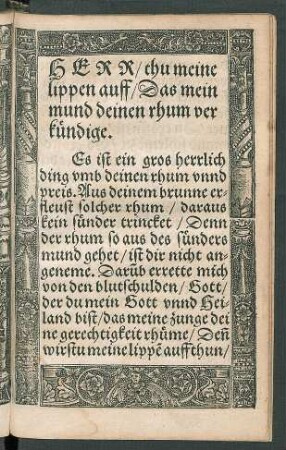 HERR/thu meine
lippen auff/Das mein
mund deinen rhum ver
kündige.
Es ist ein gros herrlich
ding vmb deinen rhum vnnd
preis. Aus deinem brunne er-
fleust solcher rhum / daraus
kein sünder trincket / Denn
der rhum so aus des sünders
mund gehet/ist dir nicht an-
geneme. Darüb errette mich
von den blutschulden / Gott/
der du mein Gott vnnd Hei-
land bist/das meine zunge dei
ne gerechtigkeit rhüme/Deñ
wirstu meine lippē auffthun/